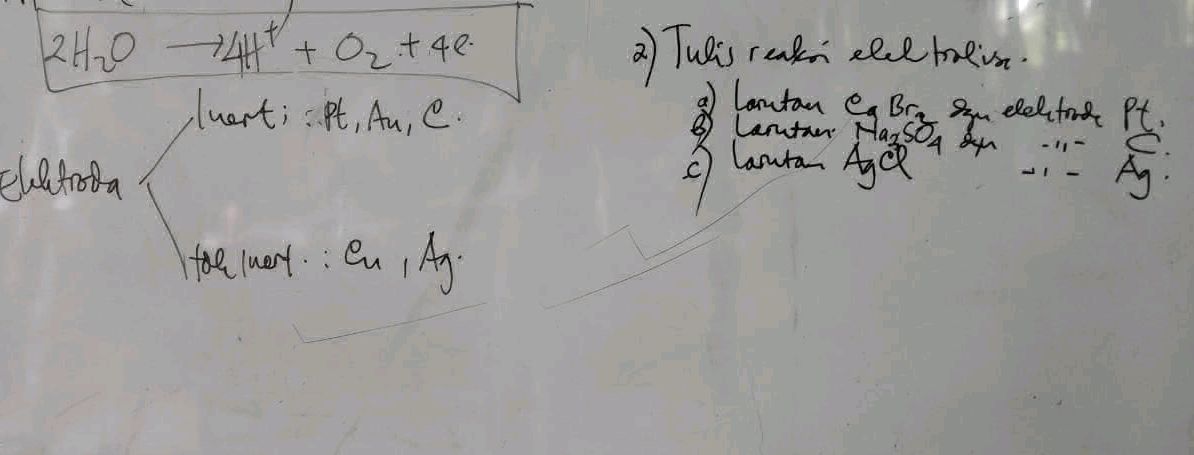 2H₂O → 4H⁺ + O₂ + 4e
Inert : Pt, Au, C.
Elektroda
tak Inert. : Cu, Ag.
2) Tulis reaksi elektrolisa.
a) Larutan CaBr₂ dgn elektrode Pt.
b) Larutan Na₂SO₄ dgn -"- C.
c) Larutan AgCl -"- Ag.